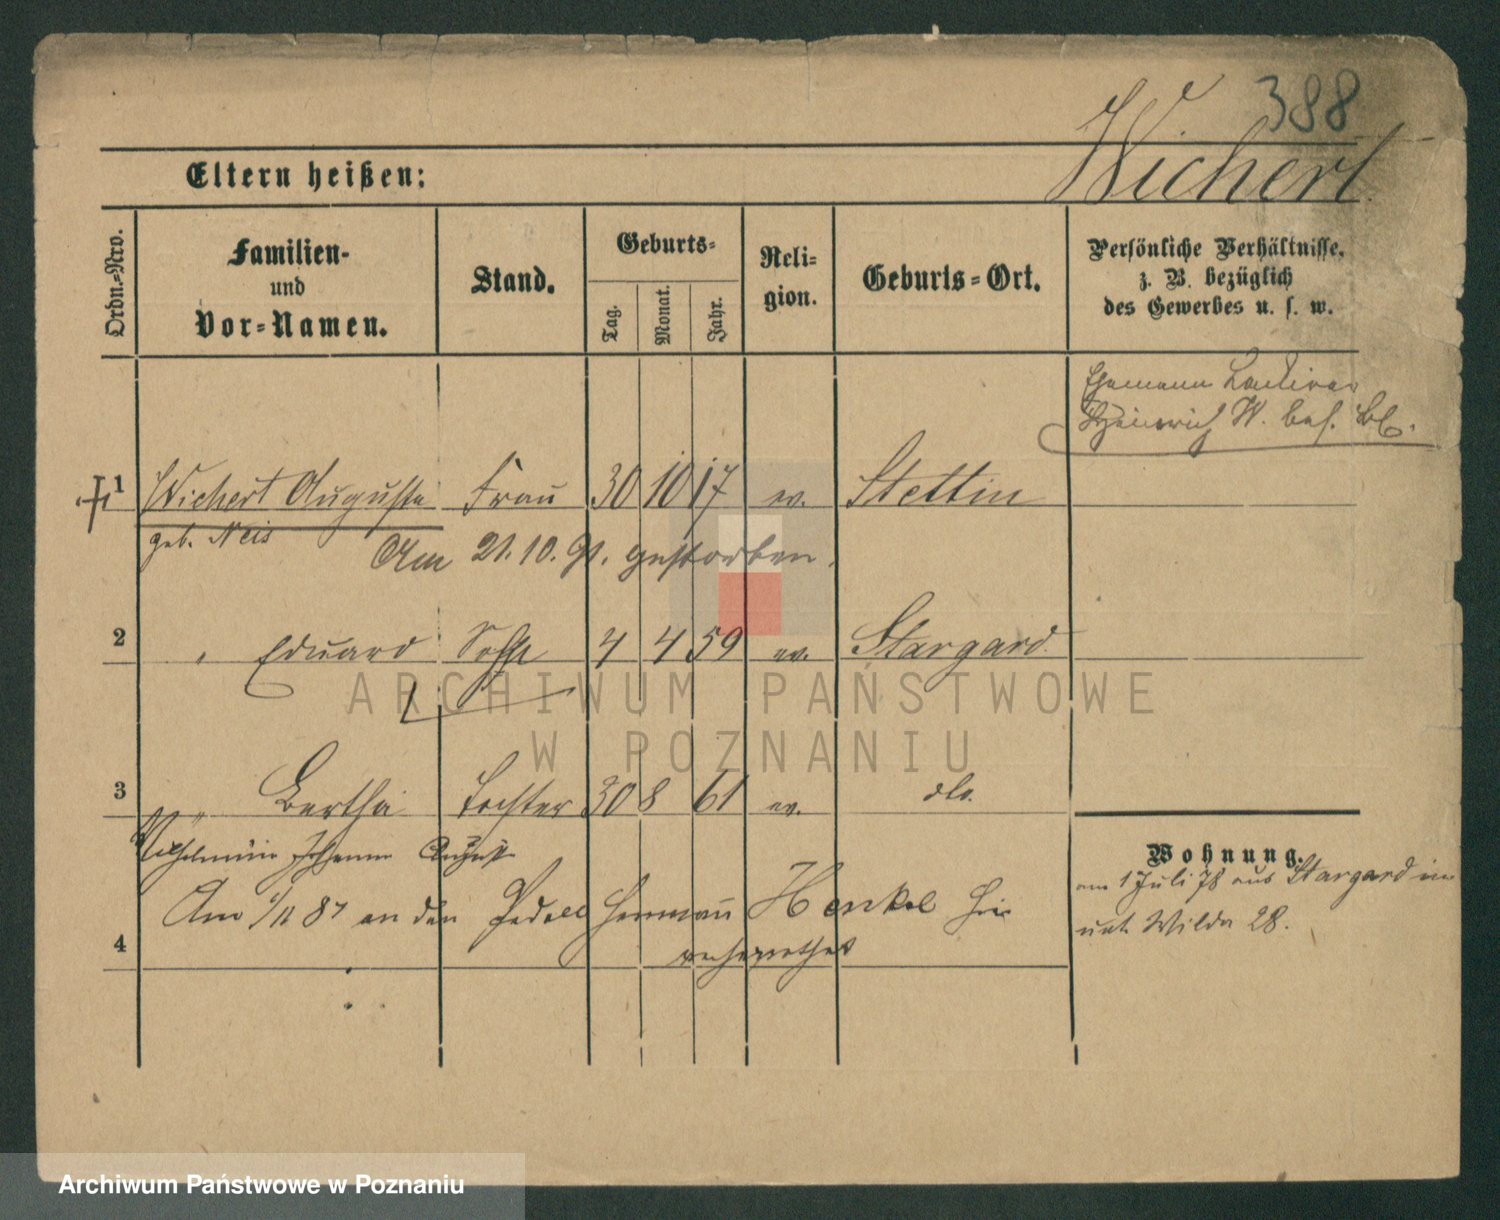 388
Wichert
Eltern heißen:
Ordn.-Nro.
Familien-
und
Vor-Namen.
Stand.
Geburts-
Tag.
Monat.
Jahr.
Reli-
gion.
Geburts-Ort.
Persönliche Verhältnisse.
z. B. bezüglich
des Gewerbes u. s. w.
Ehemann
Heinrich W. bes. Bl.
1 Wichert Auguste Frau 30 10 17 ev. Stettin
geb. Neis
Am 21. 10. 91. gestorben.
2 " Eduard Sohn 4 4 59 ev. Stargard
3 " Bertha Tochter 30 8 61 ev. dto.
Wilhelmine Johanne August
Am 1/11 87 an den Pedell Hermann Henkel hier
verheirathet
4
Wohnung.
am 1 Juli 78 aus Stargard in
unt. Wilda 28.
ARCHIWUM PAŃSTWOWE
W POZNANIU
Archiwum Państwowe w Poznaniu